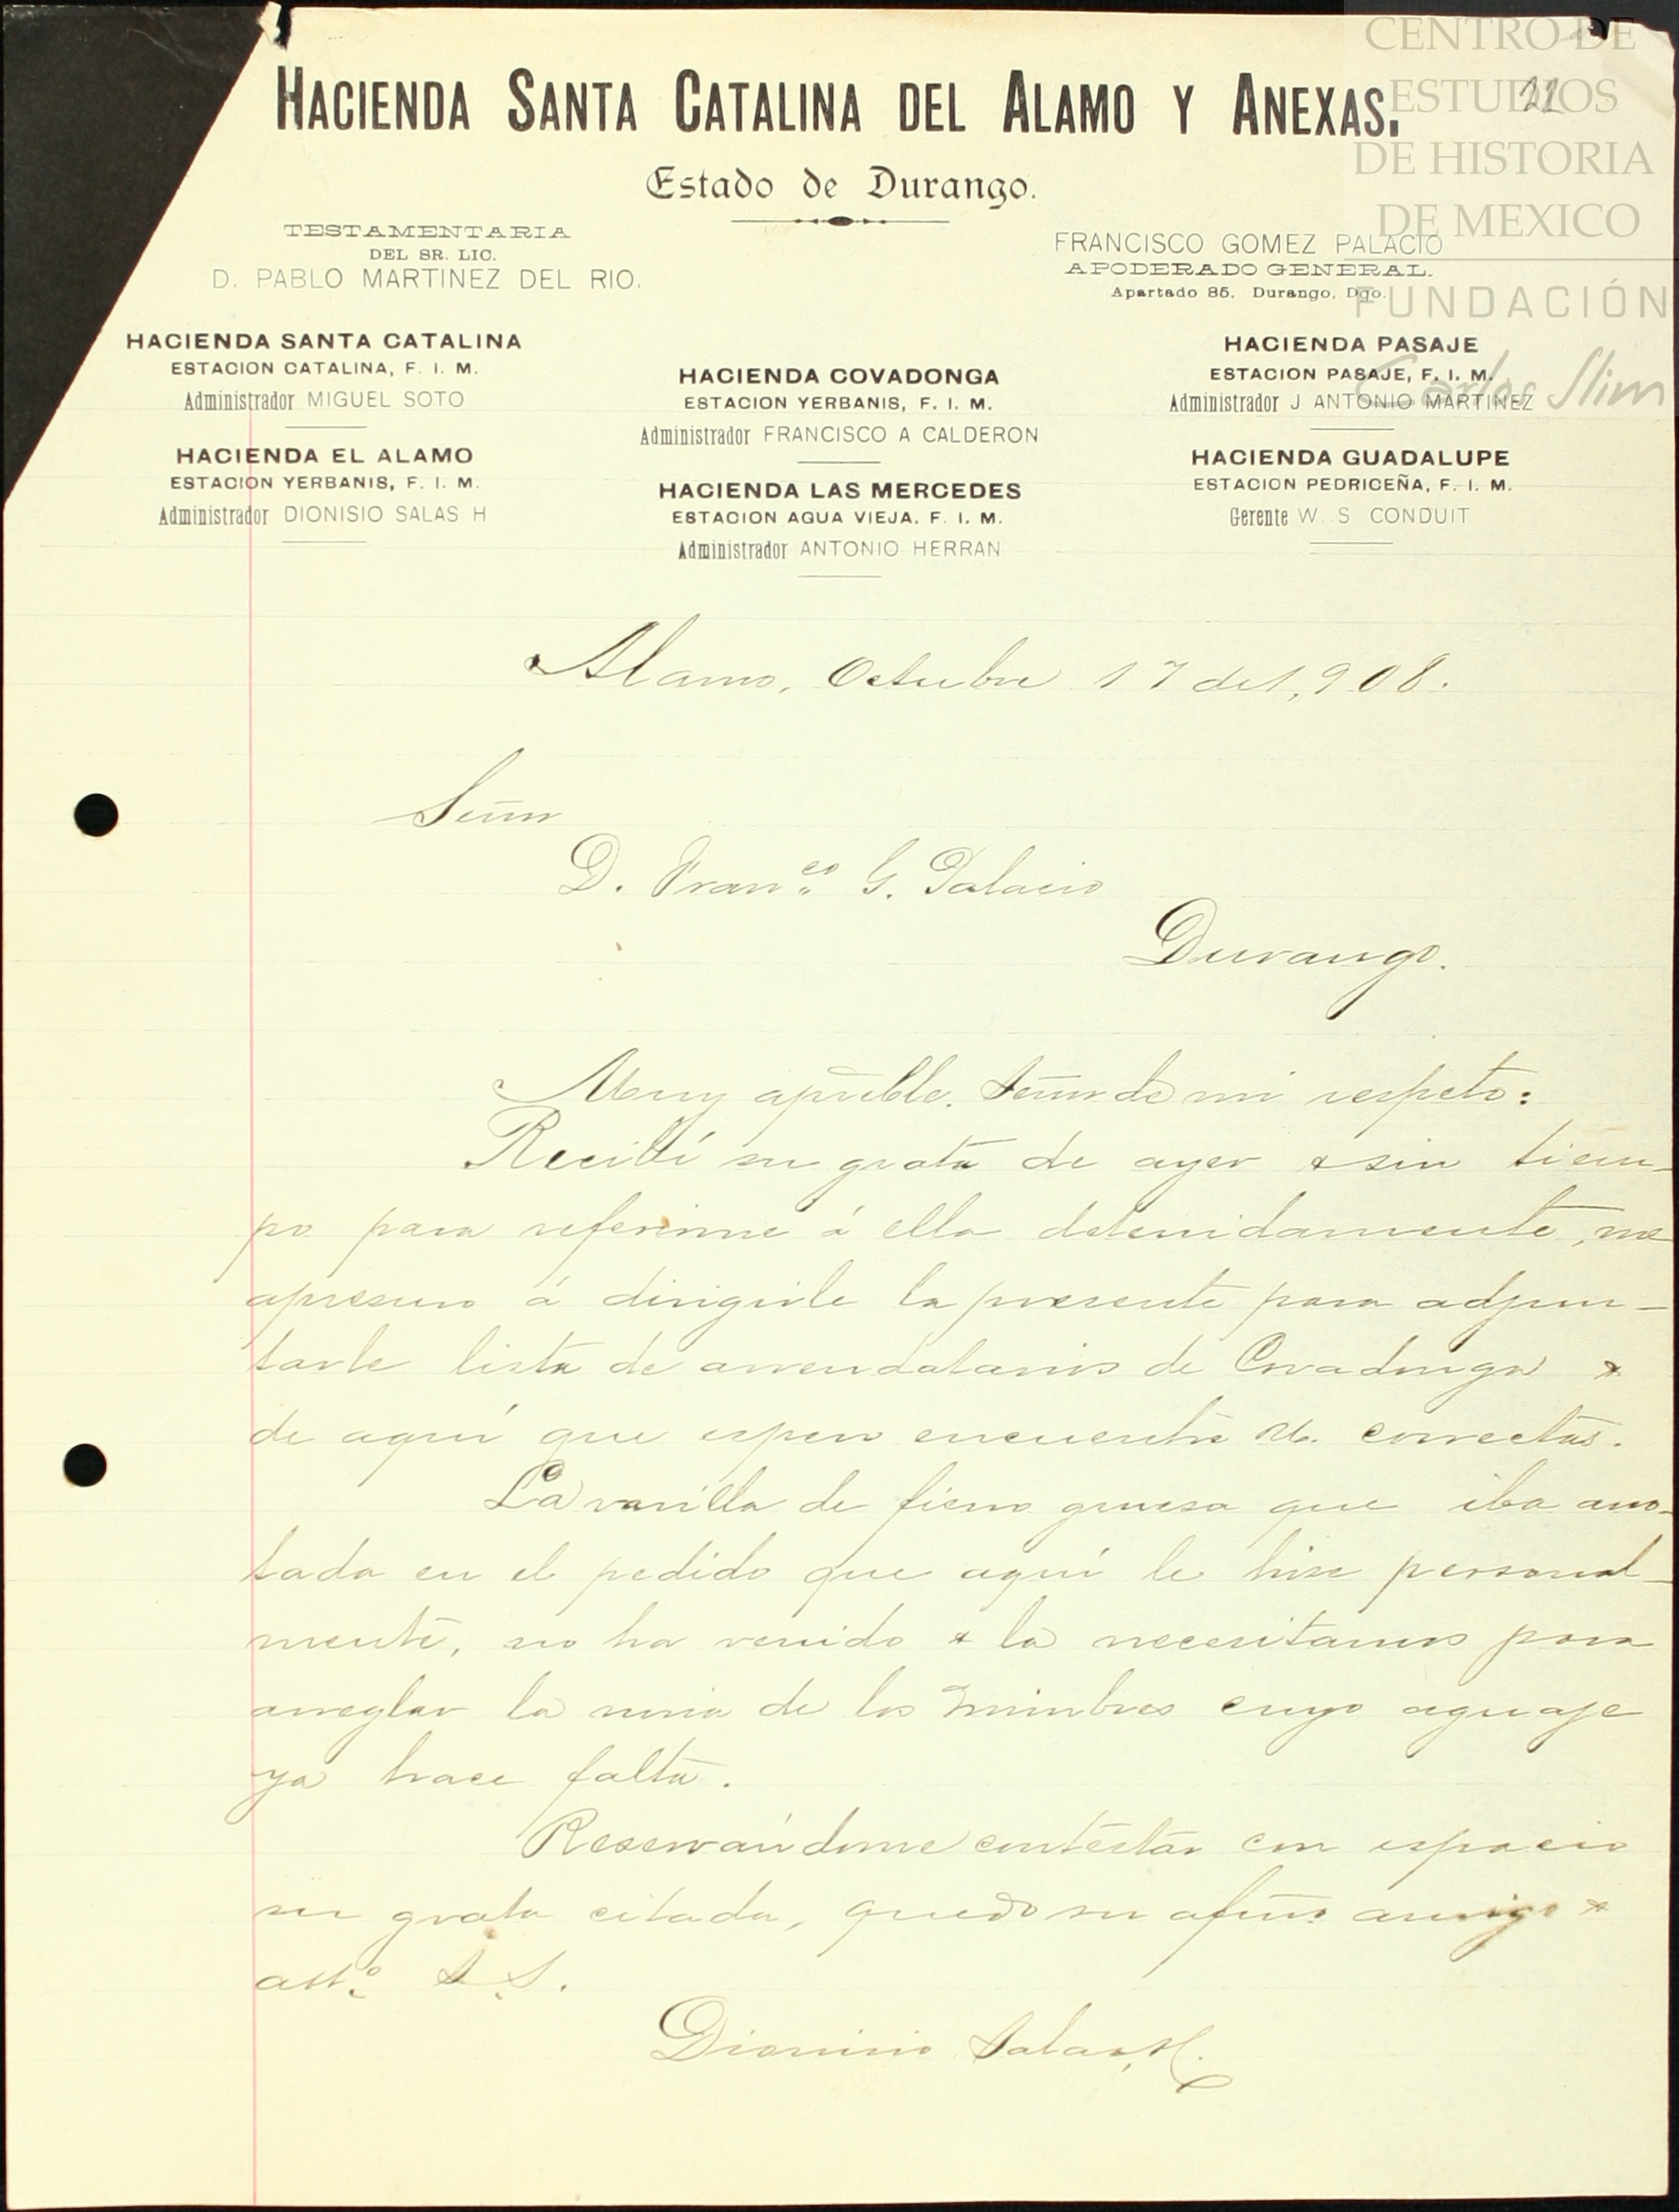 CENTRO DE
ESTUDIOS
DE HISTORIA
DE MEXICO
FUNDACIÓN
Carlos Slim
HACIENDA SANTA CATALINA DEL ALAMO Y ANEXAS.
Estado de Durango.
TESTAMENTARIA
DEL SR. LIC.
D. PABLO MARTINEZ DEL RIO.
FRANCISCO GOMEZ PALACIO
APODERADO GENERAL.
Apartado 85. Durango, Dgo.
HACIENDA SANTA CATALINA
ESTACION CATALINA, F. I. M.
Administrador MIGUEL SOTO
HACIENDA EL ALAMO
ESTACION YERBANIS, F. I. M.
Administrador DIONISIO SALAS H
HACIENDA COVADONGA
ESTACION YERBANIS, F. I. M.
Administrador FRANCISCO A CALDERON
HACIENDA LAS MERCEDES
ESTACION AGUA VIEJA. F. I. M.
Administrador ANTONIO HERRAN
HACIENDA PASAJE
ESTACION PASAJE, F. I. M.
Administrador J ANTONIO MARTINEZ
HACIENDA GUADALUPE
ESTACION PEDRICEÑA, F. I. M.
Gerente W. S CONDUIT
Alamo, Octubre 17 de 1,908.
Señor
D. Franco. G. Palacio
Durango.
Muy apreble. Señor de mi respeto:
Recibí su grata de ayer & sin tiem-
po para referirme á ella detenidamente, me
apresuro á dirigirle la presente para adjun-
tarle lista de arrendatarios de Covadonga &
de aquí que espero encuentre U. correctas.
La varilla de fierro gruesa que iba ano-
tada en el pedido que aquí le hice personal-
mente, no ha venido & la necesitamos para
arreglar la noria de los Mimbres cuyo aguaje
ya hace falta.
Reservándome contestar con espacio
su grata citada, quedo su afmo. amigo &
atto. S. S.
Dionisio Salas H.